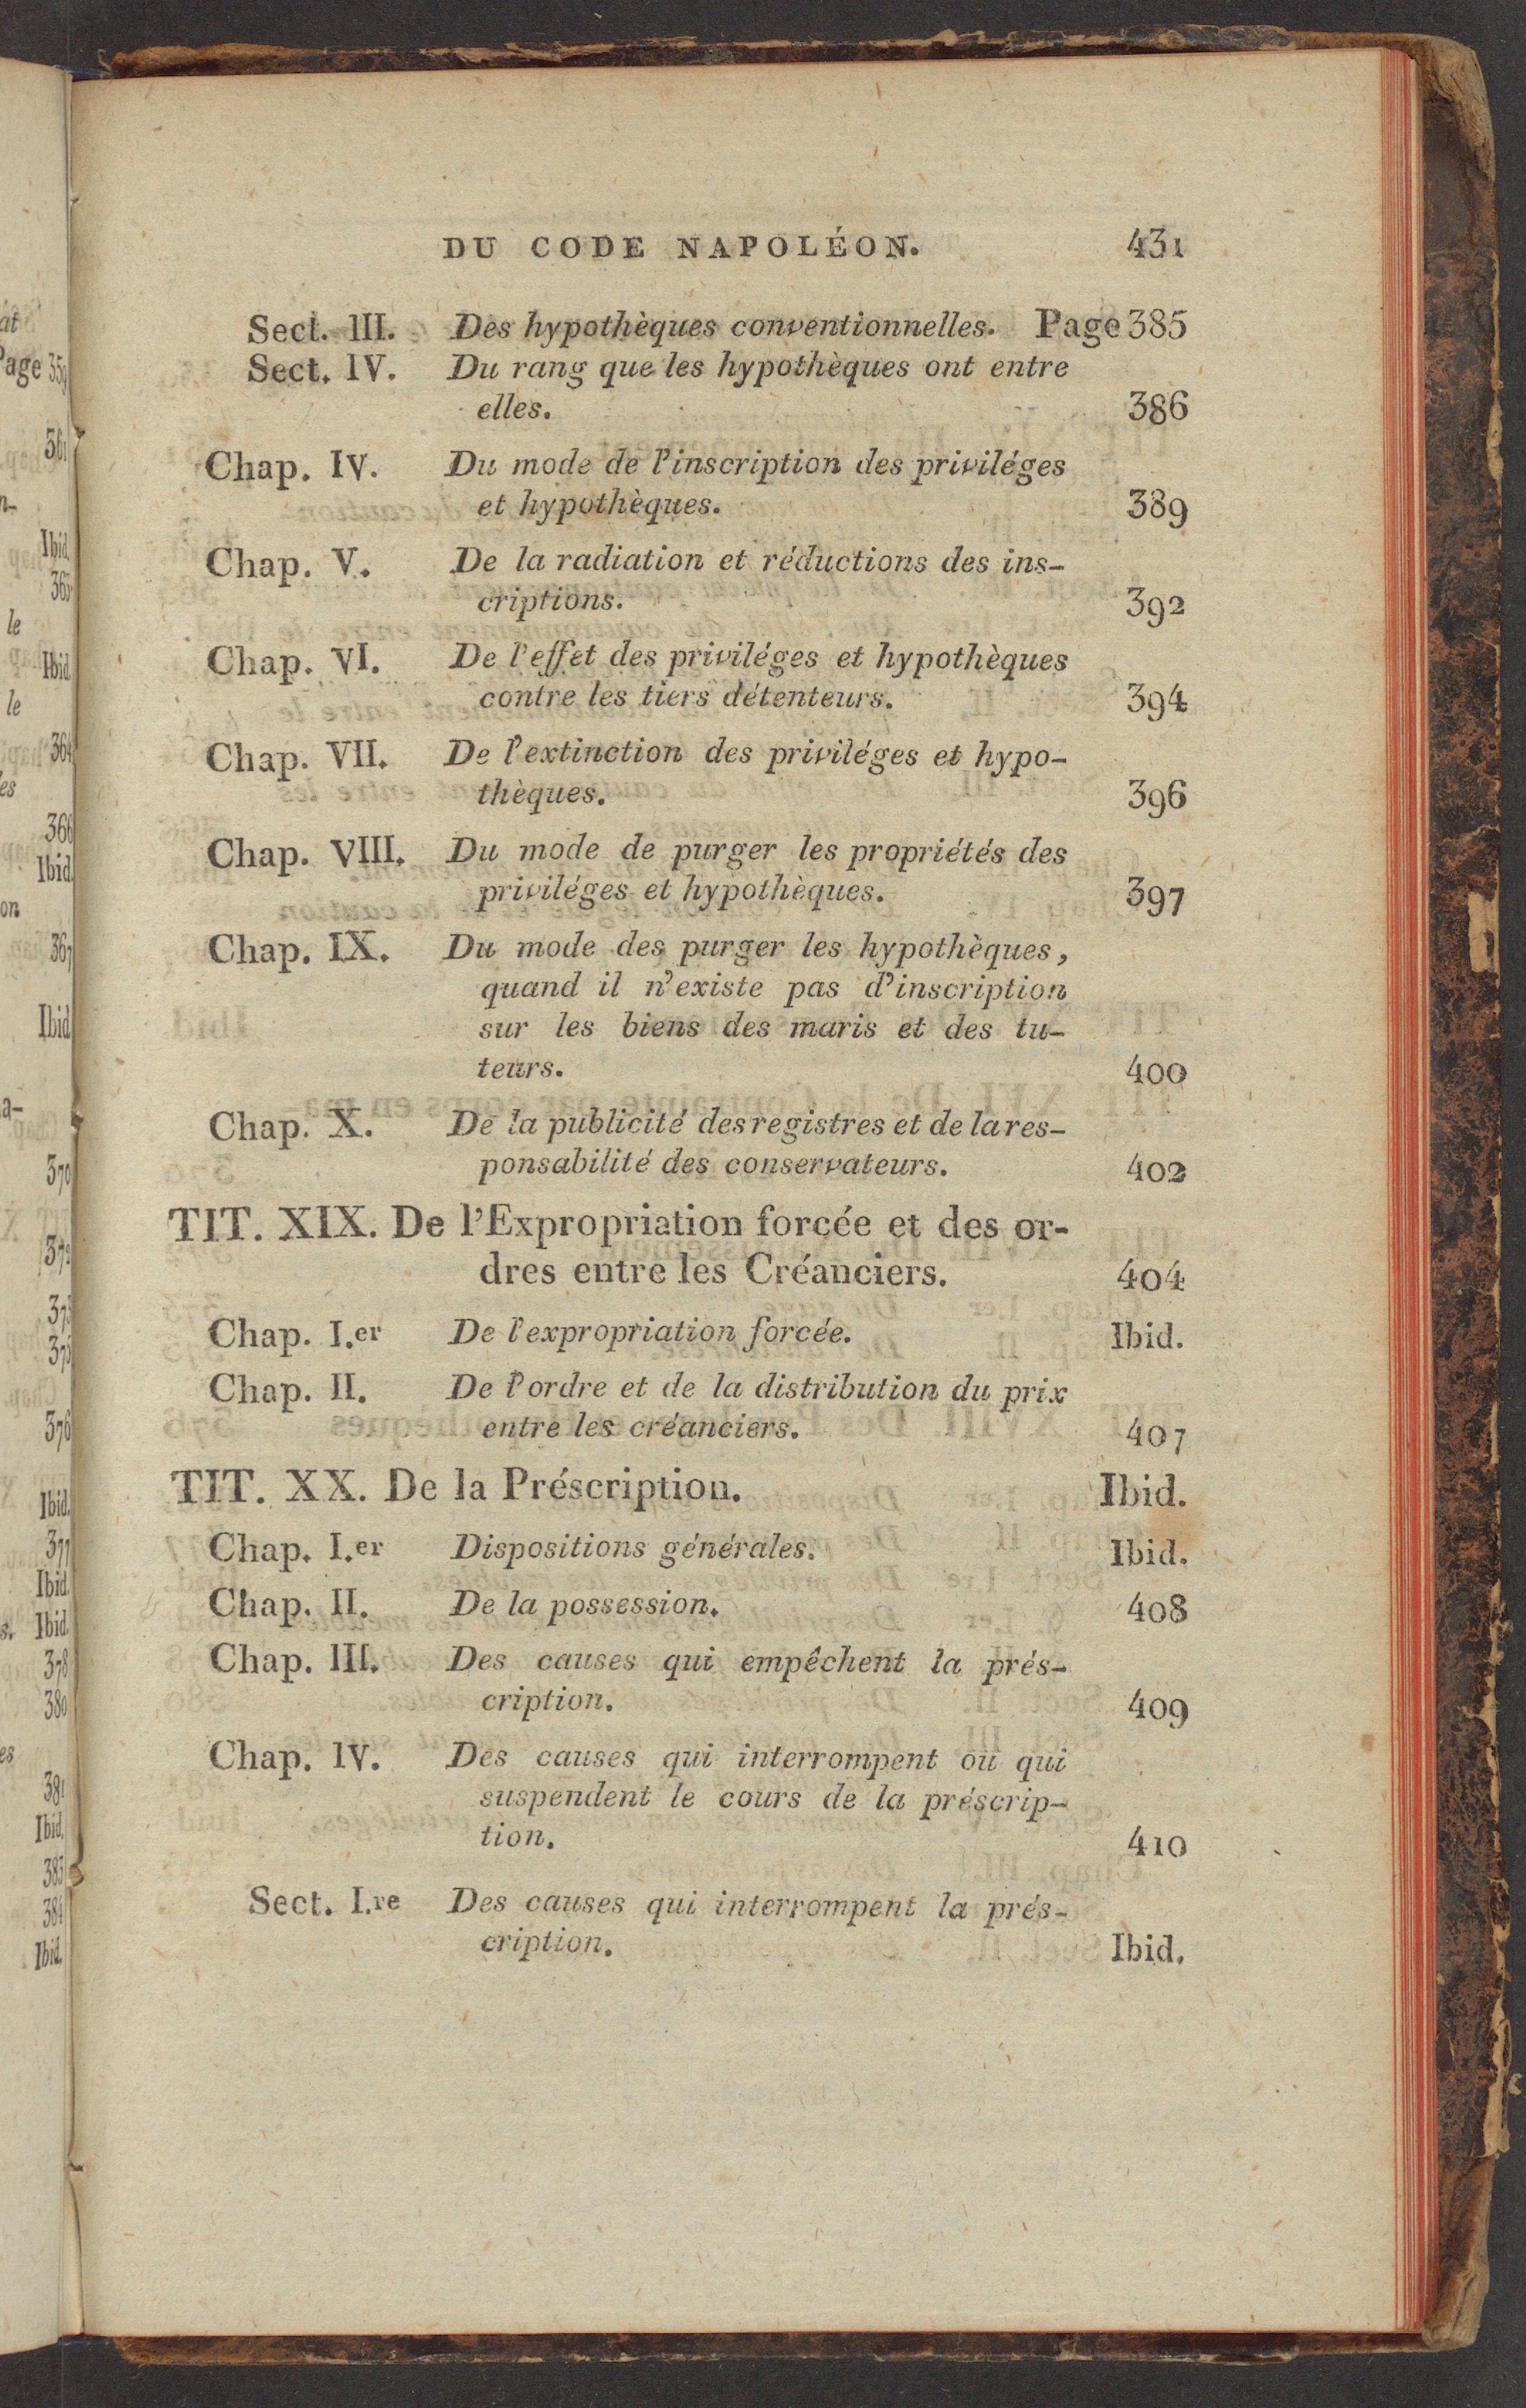 DU CODE NAPOLÉON. 431
Sect. III. Des hypothèques conventionnelles. Page 385
Sect. IV. Du rang que les hypothèques ont entre
elles. 386
Chap. IV. Du mode de l'inscription des priviléges
et hypothèques. 389
Chap. V. De la radiation et réductions des ins-
criptions. 392
Chap. VI. De l'effet des priviléges et hypothèques
contre les tiers détenteurs. 394
Chap. VII. De l'extinction des priviléges et hypo-
thèques. 396
Chap. VIII. Du mode de purger les propriétés des
priviléges et hypothèques. 397
Chap. IX. Du mode des purger les hypothèques,
quand il n'existe pas d'inscription
sur les biens des maris et des tu-
teurs. 400
Chap. X. De la publicité des registres et de la res-
ponsabilité des conservateurs. 402
TIT. XIX. De l'Expropriation forcée et des or-
dres entre les Créanciers. 404
Chap. I.er De l'expropriation forcée. Ibid.
Chap. II. De l'ordre et de la distribution du prix
entre les créanciers. 407
TIT. XX. De la Préscription. Ibid.
Chap. I.er Dispositions générales. Ibid.
Chap. II. De la possession. 408
Chap. III. Des causes qui empêchent la prés-
cription. 409
Chap. IV. Des causes qui interrompent ou qui
suspendent le cours de la préscrip-
tion. 410
Sect. I.re Des causes qui interrompent la prés-
cription. Ibid.